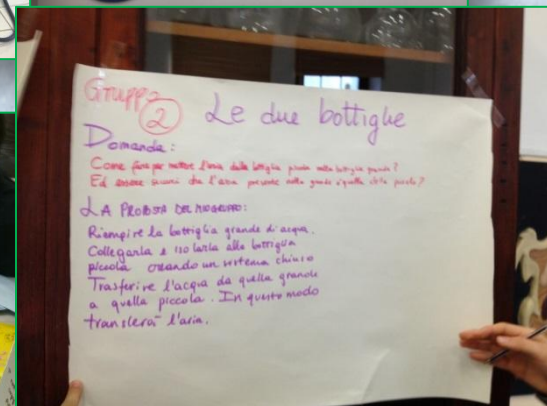 Gruppo 2
Le due bottiglie
Domanda:
Come fare per mettere l'aria della bottiglia piccola nella bottiglia grande?
Ed essere sicuri che l'aria presente nella grande è quella della piccola?
LA PROPOSTA DEL MIO GRUPPO:
Riempire la bottiglia grande di acqua.
Collegarla e isolarla alla bottiglia
piccola creando un sistema chiuso
Trasferire l'acqua da quella grande
a quella piccola. In questo modo
translerà l'aria.